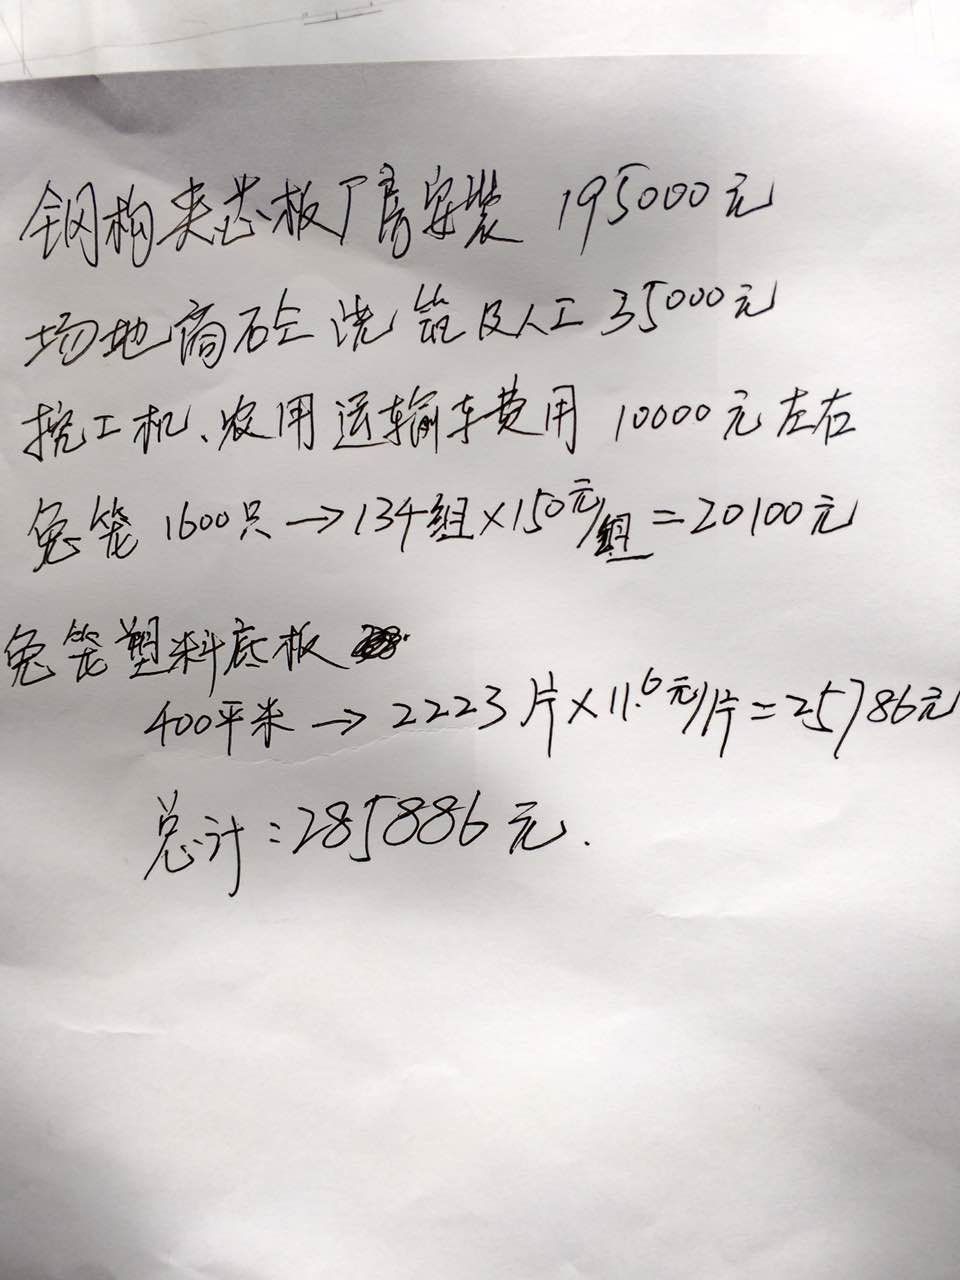 钢构夹芯板厂房安装 195000元
场地商砼浇筑及人工35000元
挖工机、农用运输车费用 10000元左右
兔笼 1600只→134组×150元/组=20100元
兔笼塑料底板
400平米→2223片×11.6元/片=25786元
总计:285886元.